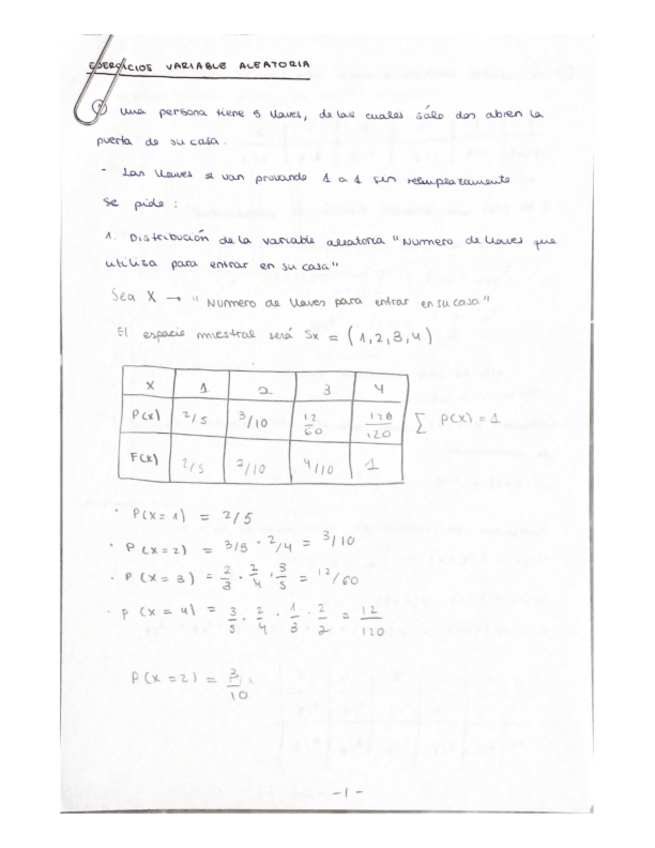 EJERCICIOS VARIABLE ALEATORIA
① Una persona tiene 5 llaves, de las cuales sólo dos abren la
puerta de su casa.
- Las llaves se van provando 1 a 1 sin reemplazamiento
Se pide :
1. Distribución de la variable aleatoria "Numero de llaves que
utiliza para entrar en su casa"
Sea X → "Numero de llaves para entrar en su casa"
El espacio muestral será Sx = (1,2,3,4)
X 1 2 3 4
P(x) 2/5 3/10 12/60 120/120 ∑ P(X) = 1
F(x) 2/5 7/10 9/10 1
· P(X=1) = 2/5
· P(X=2) = 3/5 · 2/4 = 3/10
· P(X=3) = 2/3 · 2/4 · 3/5 = 12/60
· P(X=4) = 3/5 · 2/4 · 1/3 · 2/2 = 12/120
P(X=2) = 3/10
-1-